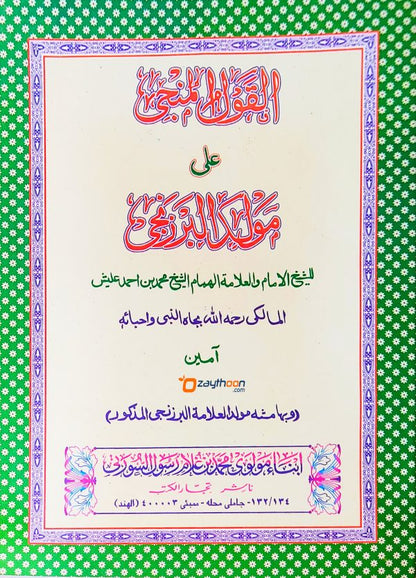 القول المنجي
على
مولد البرزنجي
للشيخ الامام والعلامة الهمام الشيخ محمد بن احمد عليش
المالكى رحمه الله بجاه النبى واحبائه
آمين
Ozaythoon
.com
(وبهامشه مولد العلامة البرزنجى المذكور)
ابناء مولوى محمد بن غلام رسول السورتى
ناشر تجار الكتب
١٣٢/١٣٤- جاملى محله - بمبئى ٤٠٠٠٠٣ (الهند)